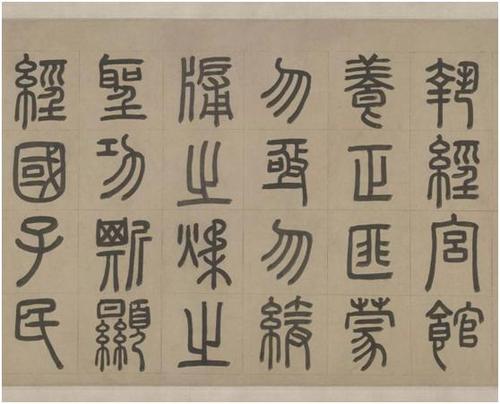 執經宮館
養正匪蒙
勿亟勿緩
牖之煣之
聖功斯顯
經國子民